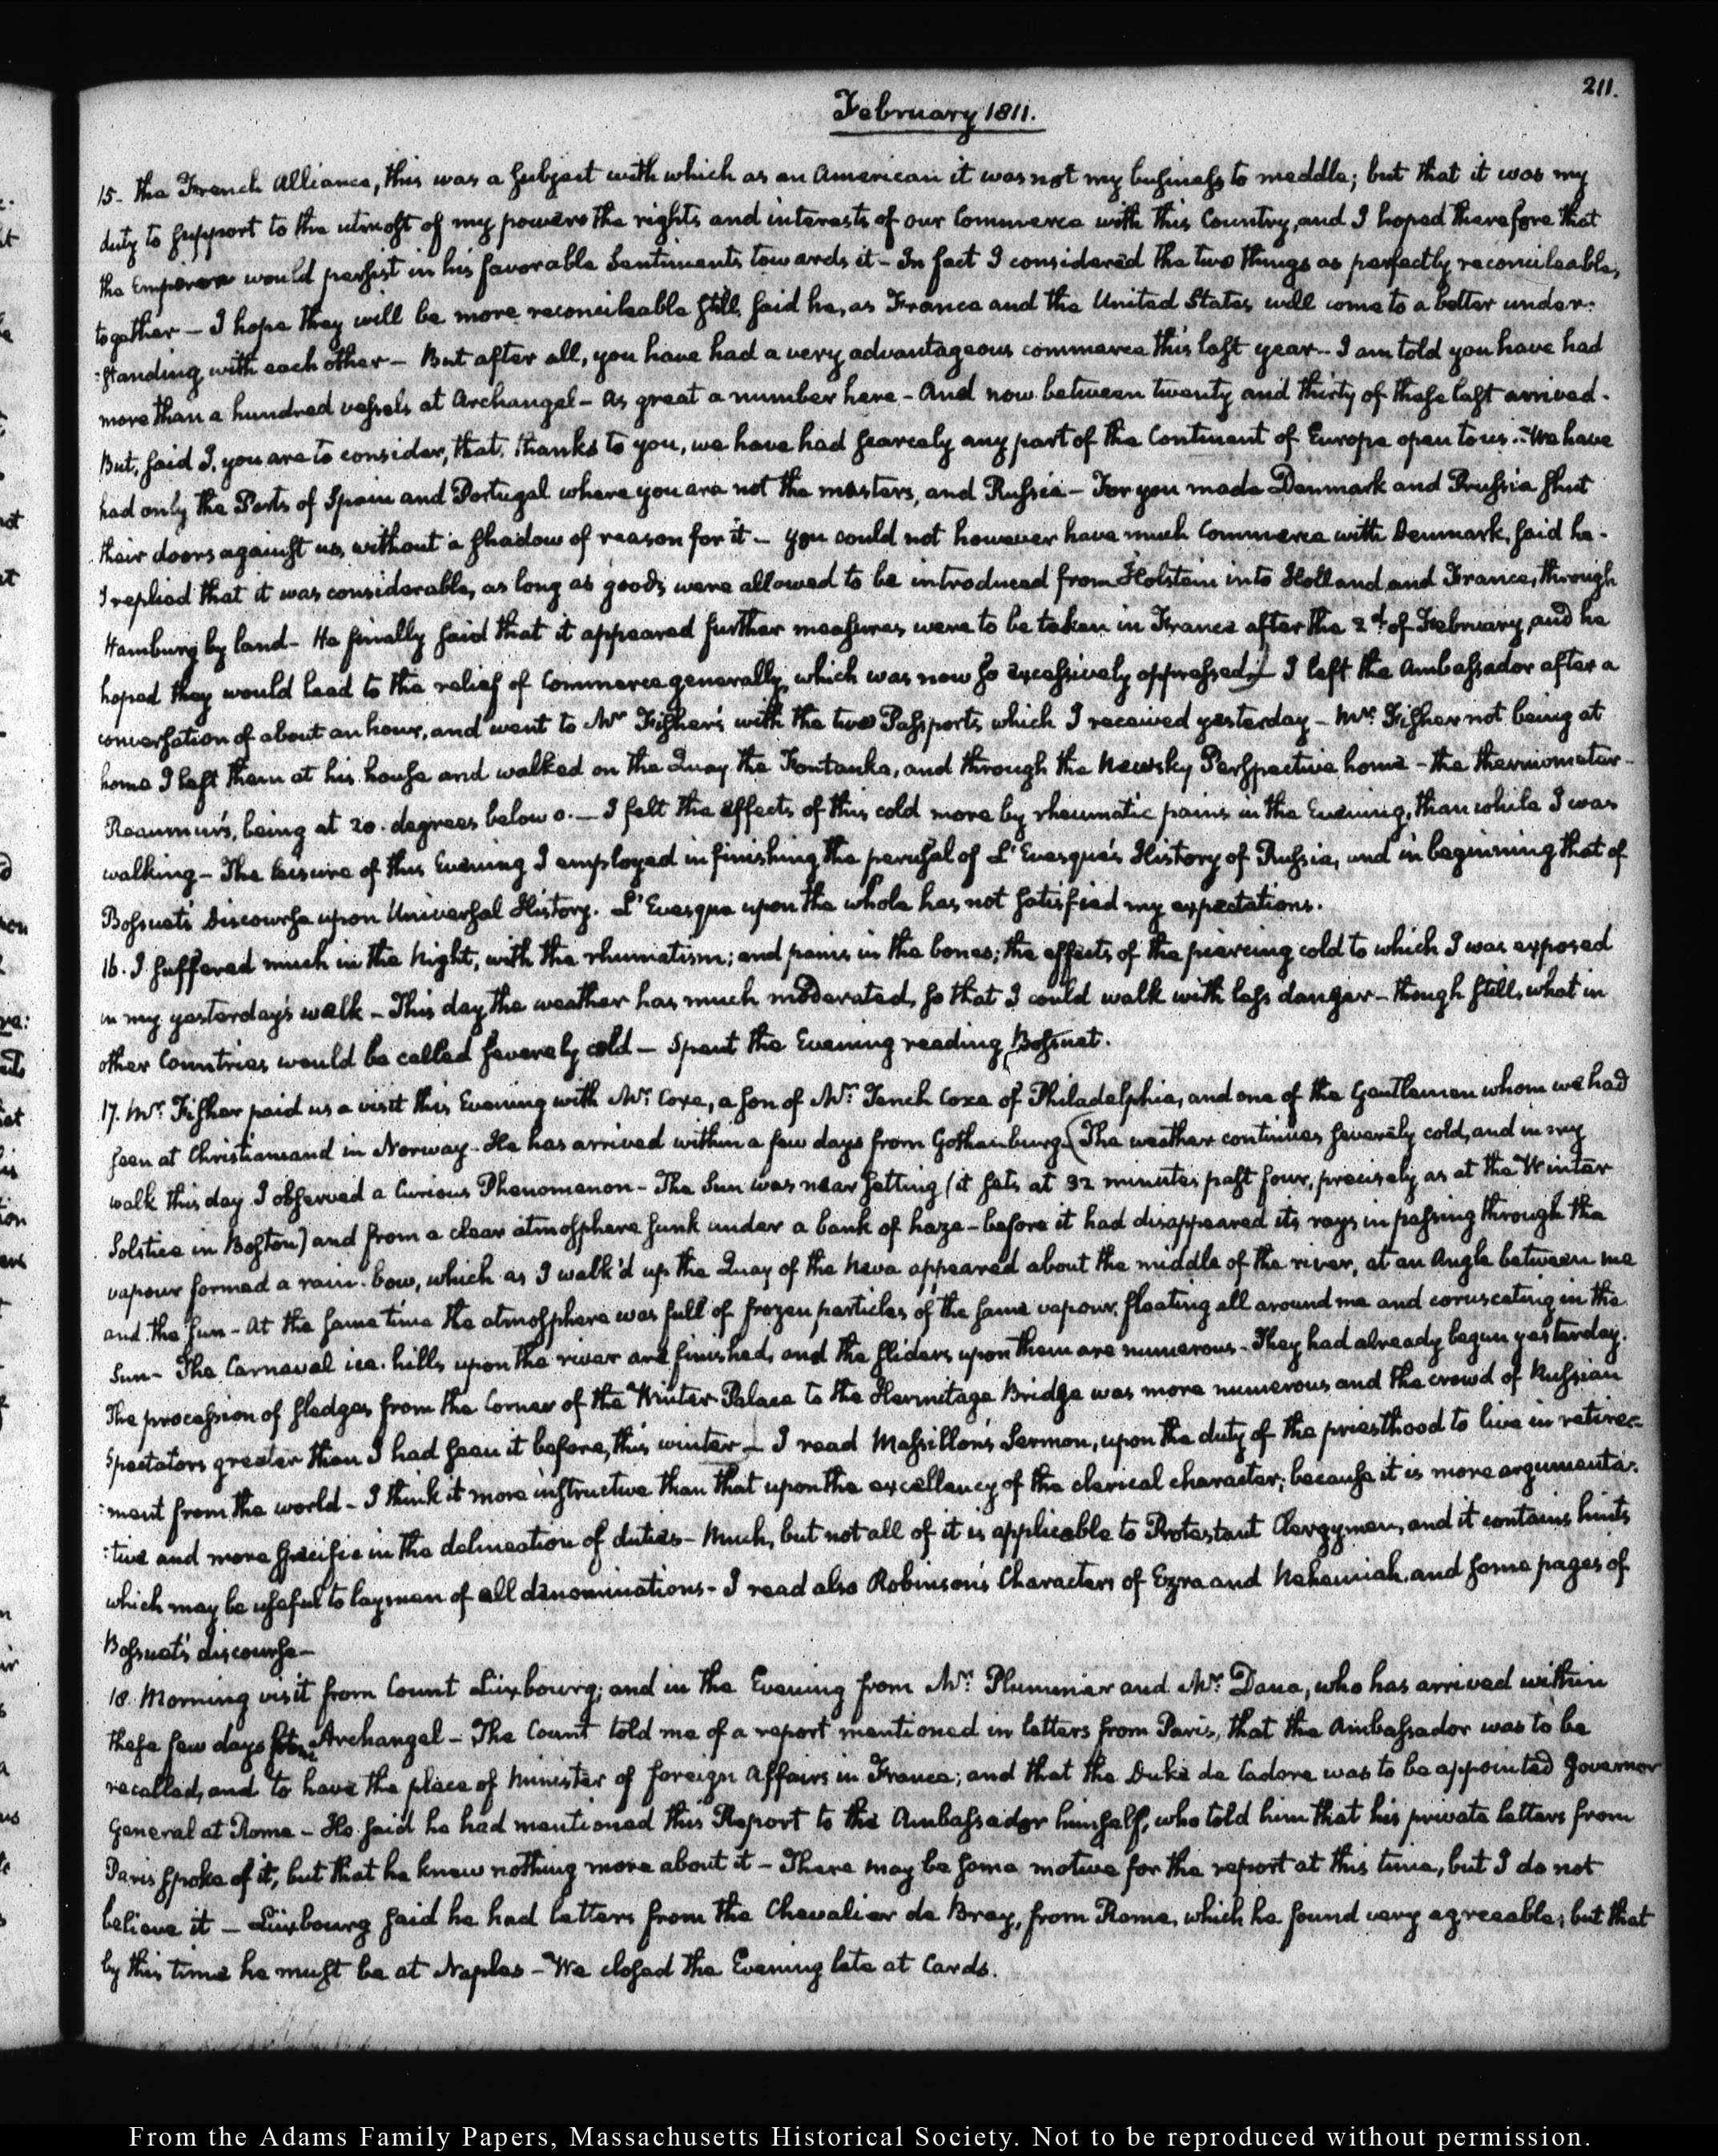 211.
February 1811.
15. the French Alliance, this was a subject with which as an American it was not my business to meddle; but that it was my
duty to support to the utmost of my powers the rights and interests of our Commerce with this Country, and I hoped therefore that
the Emperor would persist in his favorable Sentiments towards it – In fact I considered the two things as perfectly reconcileable,
together – I hope they will be more reconcileable still, said he, as France and the United States will come to a better under-
:standing with each other – But after all, you have had a very advantageous commerce this last year – I am told you have had
more than a hundred vessels at Archangel – As great a number here – And now between twenty and thirty of these last arrived.
But, said I, you are to consider, that, thanks to you, we have had scarcely any part of the Continent of Europe open to us. – We have
had only the Ports of Spain and Portugal where you are not the masters, and Russia – For you made Denmark and Prussia shut
their doors against us, without a shadow of reason for it – You could not however have much Commerce with Denmark, said he.
I replied that it was considerable, as long as goods were allowed to be introduced from Holstein into Holland and France, through
Hamburg by land – He finally said that it appeared further measures were to be taken in France after the 2d. of February, and he
hoped they would lead to the relief of Commerce generally, which was now so excessively oppressed – I left the Ambassador after a
conversation of about an hour, and went to Mr. Fisher's with the two Passports which I received yesterday – Mr. Fisher not being at
home I left them at his house and walked on the Quay the Fontanka, and through the Newsky Perspective home – the thermometer
Reaumur's, being at 20. degrees below 0. – I felt the effects of this cold more by rheumatic pains in the Evening, than while I was
walking – The leisure of this Evening I employed in finishing the perusal of L'Evesque's History of Russia, and in beginning that of
Bossuet's Discourse upon Universal History. L'Evesque upon the whole has not satisfied my expectations.
16. I suffered much in the Night, with the rhumatism; and pains in the bones; the effects of the piercing cold to which I was exposed
in my yesterday's walk – This day the weather has much moderated, so that I could walk with less danger – though still, what in
other Countries would be called severely cold – Spent the Evening reading Bossuet.
17. Mr. Fisher paid us a visit this Evening with Mr. Coxe, a son of Mr. Tench Coxe of Philadelphia, and one of the Gentlemen whom we had
seen at Christiansand in Norway – He has arrived within a few days from Gothenburg. (The weather continues severely cold, and in my
walk this day I observed a Curious Phenomenon – The Sun was near setting (it sets at 32 minutes past four, precisely as at the Winter
Solstice in Boston) and from a clear atmosphere sunk under a bank of haze – before it had disappeared its rays in passing through the
vapour formed a rain-bow, which as I walk'd up the Quay of the Neva appeared about the middle of the river, at an Angle between me
and the sun – At the same time the atmosphere was full of frozen particles of the same vapour, floating all around me and coruscating in the
Sun – The Carnaval ice-hills upon the river are finished, and the sliders upon them are numerous – They had already begun yesterday.
The procession of sledges from the Corner of the Winter Palace to the Hermitage Bridge was more numerous and the crowd of Russian
Spectators greater than I had seen it before, this winter – I read Massillon's Sermon, upon the duty of the priesthood to live in retire-
:ment from the world – I think it more instructive than that upon the excellency of the clerical character; because it is more argumenta-
:tive and more specific in the delineation of duties – Much, but not all of it is applicable to Protestant Clergymen, and it contains hints
which may be useful to laymen of all denominations – I read also Robinson's Characters of Ezra and Nehemiah, and some pages of
Bossuet's discourse –
18. Morning visit from Count Lüxbourg; and in the Evening from Mr. Plummer and Mr. Dana, who has arrived within
these few days from Archangel – The Count told me of a report mentioned in letters from Paris, that the Ambassador was to be
recalled, and to have the place of Minister of foreign Affairs in France; and that the Duke de Cadore was to be appointed Governor
General at Rome – He said he had mentioned this Report to the Ambassador himself, who told him that his private letters from
Paris spoke of it, but that he knew nothing more about it – There may be some motive for the report at this time, but I do not
believe it – Lüxbourg said he had letters from the Chevalier de Bray, from Rome, which he found very agreeable; but that
by this time he must be at Naples – We closed the Evening late at Cards.
From the Adams Family Papers, Massachusetts Historical Society. Not to be reproduced without permission.